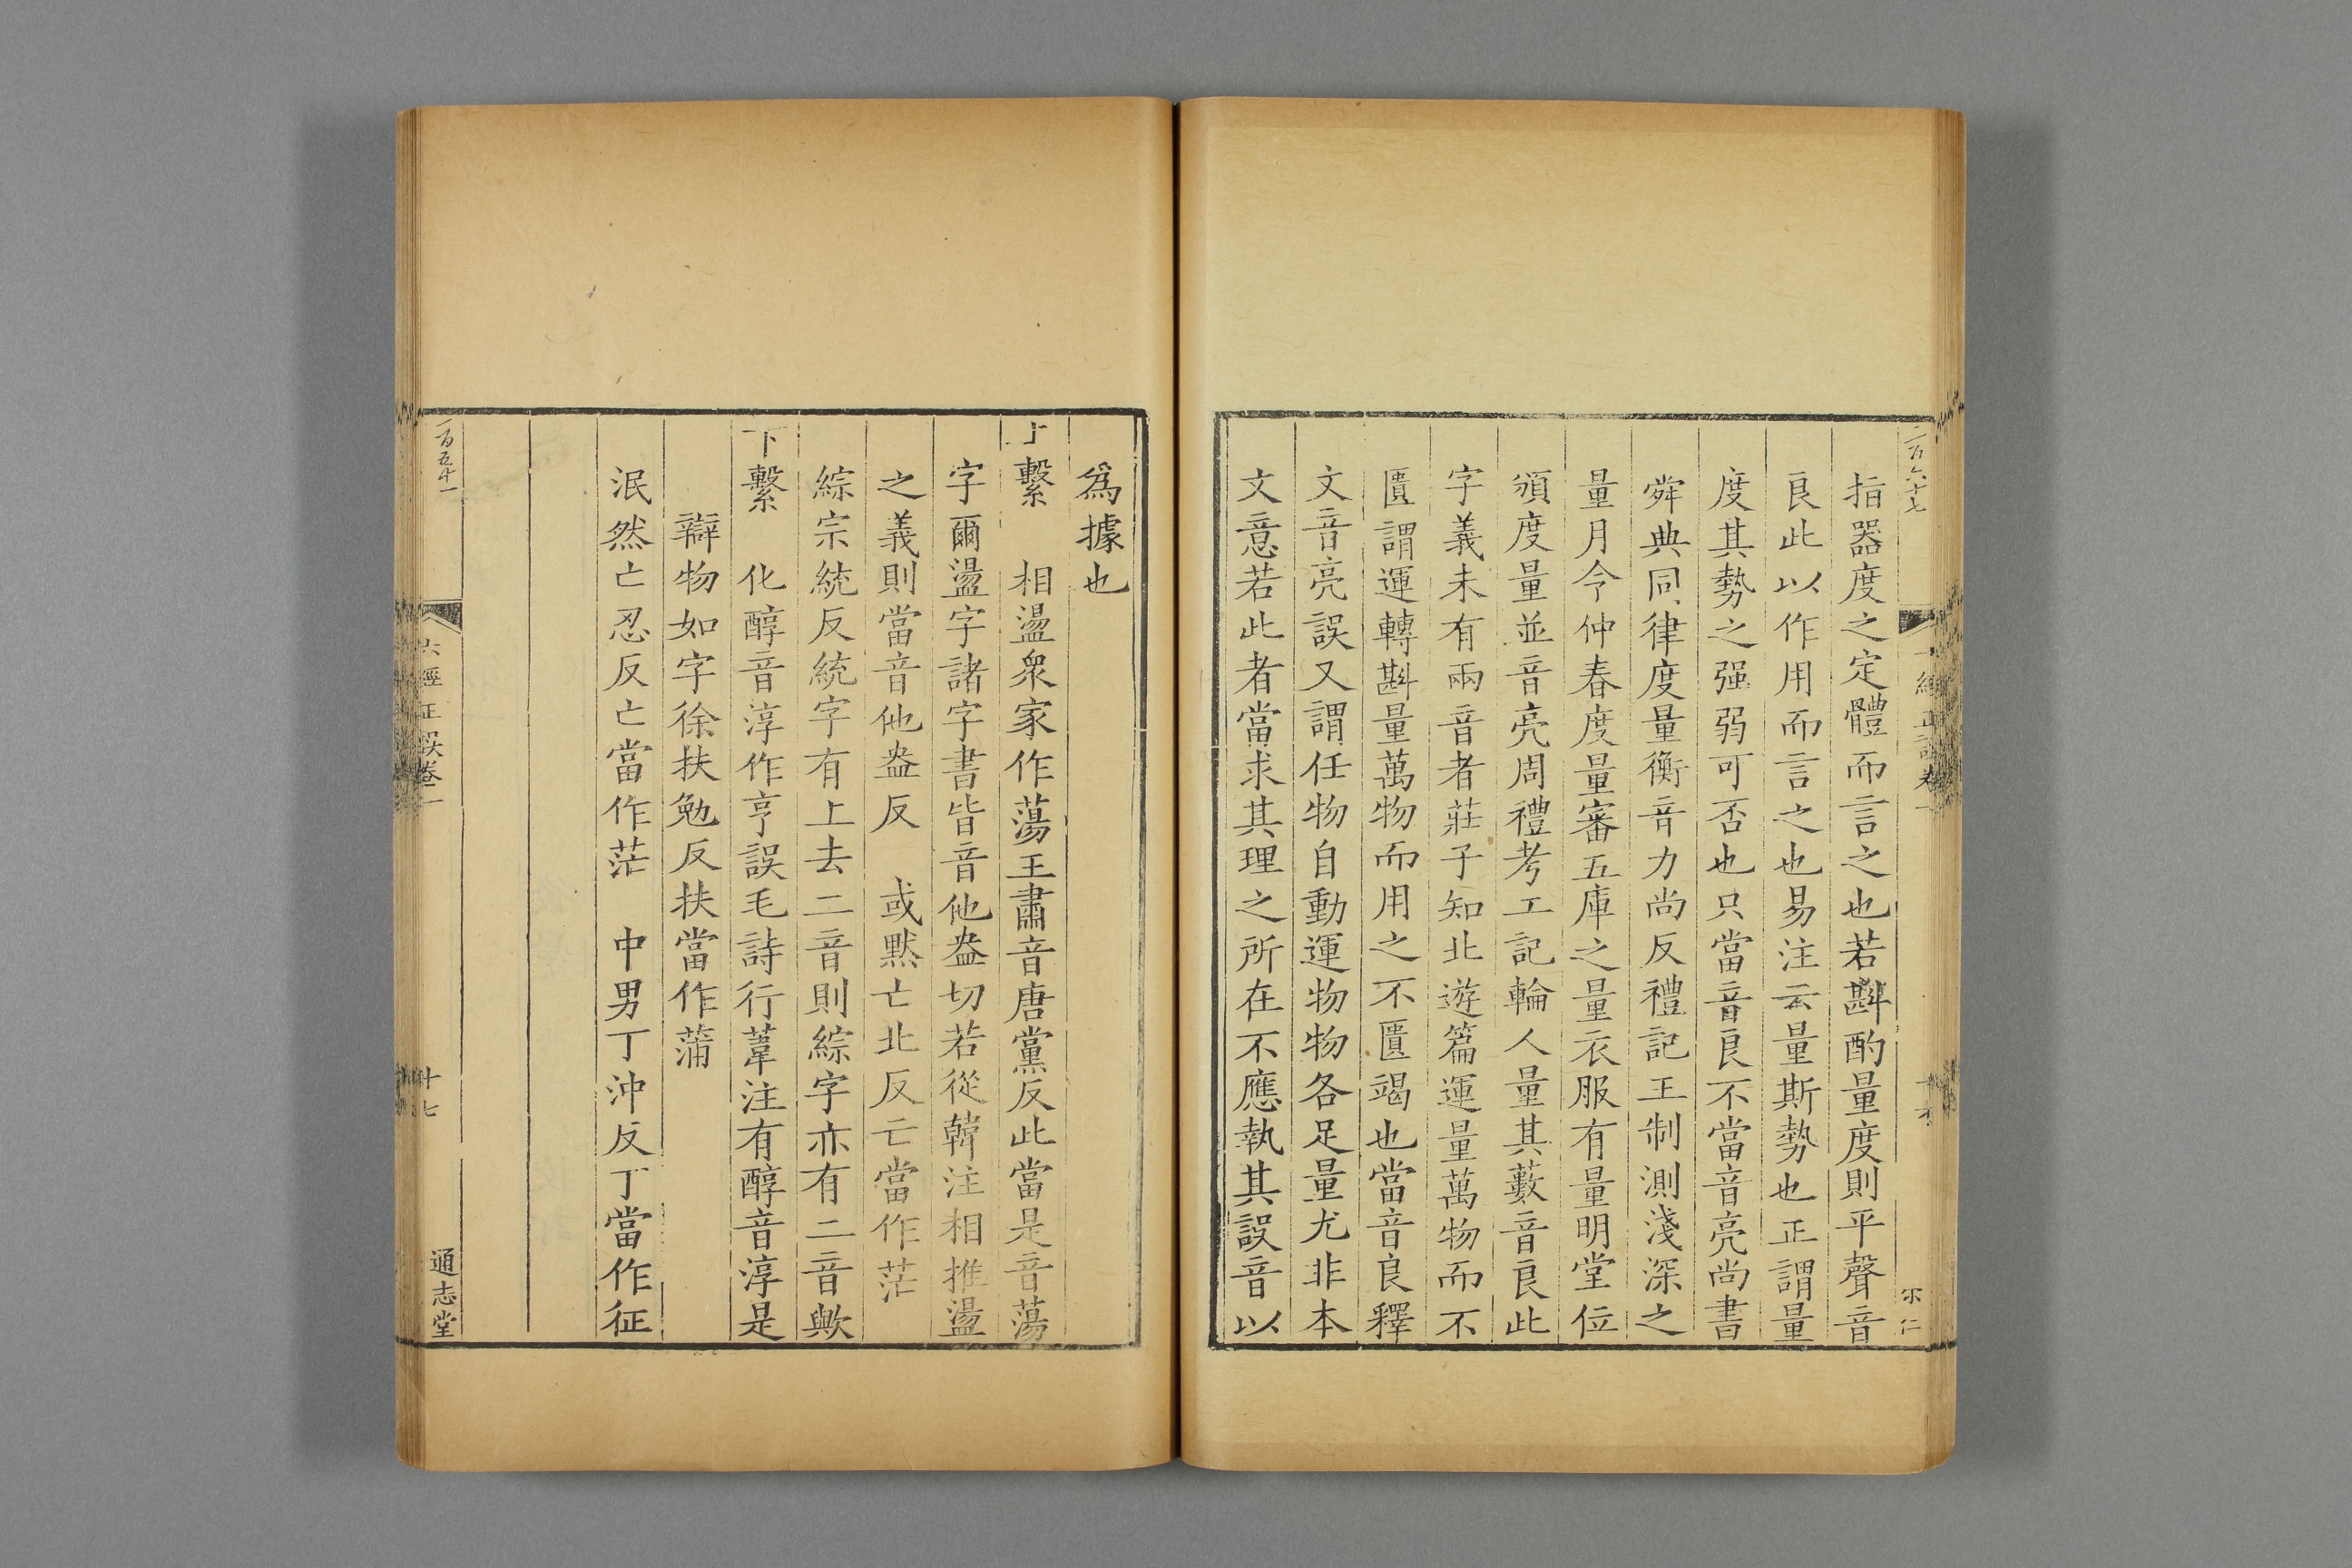 二百六十七
指器度之定體而言之也若斟酌量度則平聲音
良此以作用而言之也易注云量斯勢也正謂量
度其勢之强弱可否也只當音良不當音亮尚書
舜典同律度量衡音力尚反禮記王制測淺深之
量月令仲春度量審五庫之量衣服有量明堂位
頒度量並音亮周禮考工記輪人量其藪音良此
字義未有兩音者莊子知北遊篇運量萬物而不
匱謂運轉斟量萬物而用之不匱竭也當音良釋
文音亮誤又謂任物自動運物物各足量尤非本
文意若此者當求其理之所在不應執其誤音以
為據也
上繫 相盪衆家作蕩王肅音唐黨反此當是音蕩
字爾盪字諸字書皆音他盎切若從韓注相推盪
之義則當音他盎反 或默亡北反亡當作茫
綜宗統反統字有上去二音則綜字亦有二音歟
下繫 化醇音淳作亨誤毛詩行葦注有醇音淳是
辯物如字徐扶勉反扶當作蒲
泯然亡忍反亡當作茫 中男丁沖反丁當作征
一百五十一
六經正誤卷一
十七
通志堂